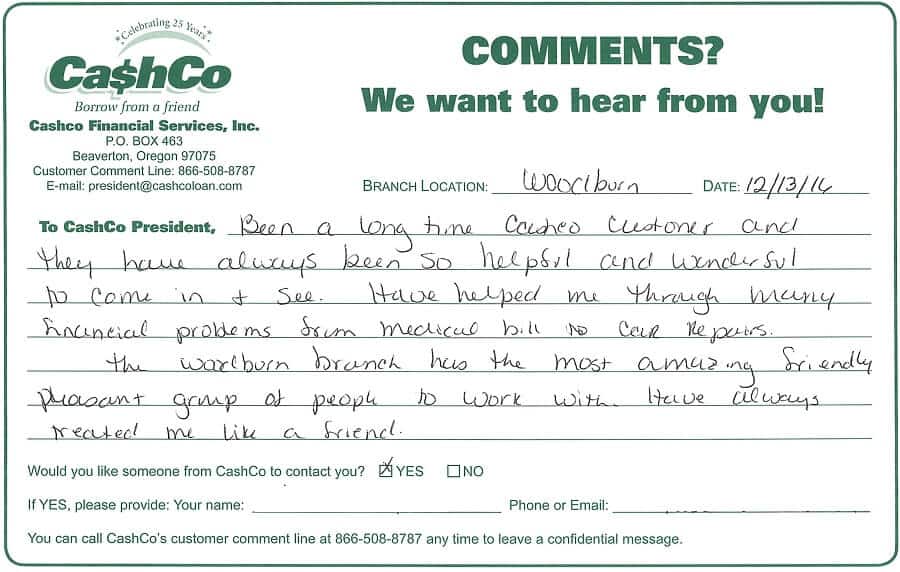 Celebrating 25 Years
Ca$hCo
Borrow from a friend
Cashco Financial Services, Inc.
P.O. BOX 463
Beaverton, Oregon 97075
Customer Comment Line: 866-508-8787
E-mail: president@cashcoloan.com
COMMENTS?
We want to hear from you!
BRANCH LOCATION: Woodburn DATE: 12/13/16
To CashCo President, Been a long time Cashco Customer and
they have always been so helpful and wonderful
to come in + see. Have helped me through many
financial problems from medical bill to Car Repairs.
the woodburn branch has the most amazing friendly
pleasant group of people to work with. Have always
treated me like a friend.
Would you like someone from CashCo to contact you? ☒ YES ☐ NO
If YES, please provide: Your name: Phone or Email:
You can call CashCo's customer comment line at 866-508-8787 any time to leave a confidential message.